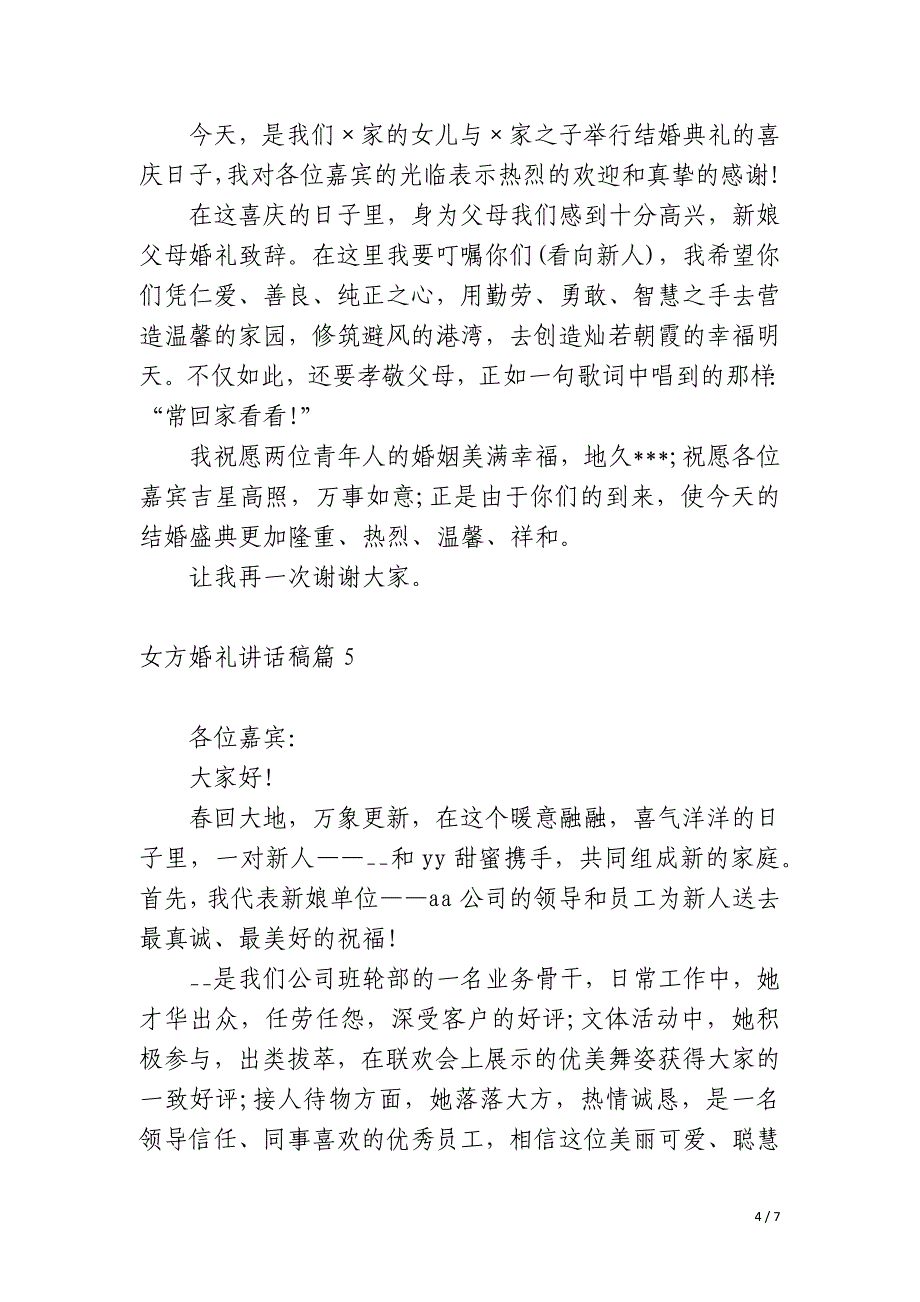 今天，是我们×家的女儿与×家之子举行结婚典礼的喜
庆日子，我对各位嘉宾的光临表示热烈的欢迎和真挚的感谢！
在这喜庆的日子里，身为父母我们感到十分高兴，新娘
父母婚礼致辞。在这里我要叮嘱你们(看向新人)，我希望你
们凭仁爱、善良、纯正之心，用勤劳、勇敢、智慧之手去营
造温馨的家园，修筑避风的港湾，去创造灿若朝霞的幸福明
天。不仅如此，还要孝敬父母，正如一句歌词中唱到的那样：
“常回家看看！”
我祝愿两位青年人的婚姻美满幸福，地久***；祝愿各位
嘉宾吉星高照，万事如意；正是由于你们的到来，使今天的
结婚盛典更加隆重、热烈、温馨、祥和。
让我再一次谢谢大家。
女方婚礼讲话稿篇5
各位嘉宾：
大家好！
春回大地，万象更新，在这个暖意融融，喜气洋洋的日
子里，一对新人——__和yy甜蜜携手，共同组成新的家庭。
首先，我代表新娘单位——aa公司的领导和员工为新人送去
最真诚、最美好的祝福！
__是我们公司班轮部的一名业务骨干，日常工作中，她
才华出众，任劳任怨，深受客户的好评；文体活动中，她积
极参与，出类拔萃，在联欢会上展示的优美舞姿获得大家的
一致好评；接人待物方面，她落落大方，热情诚恳，是一名
领导信任、同事喜欢的优秀员工，相信这位美丽可爱、聪慧
4 / 7